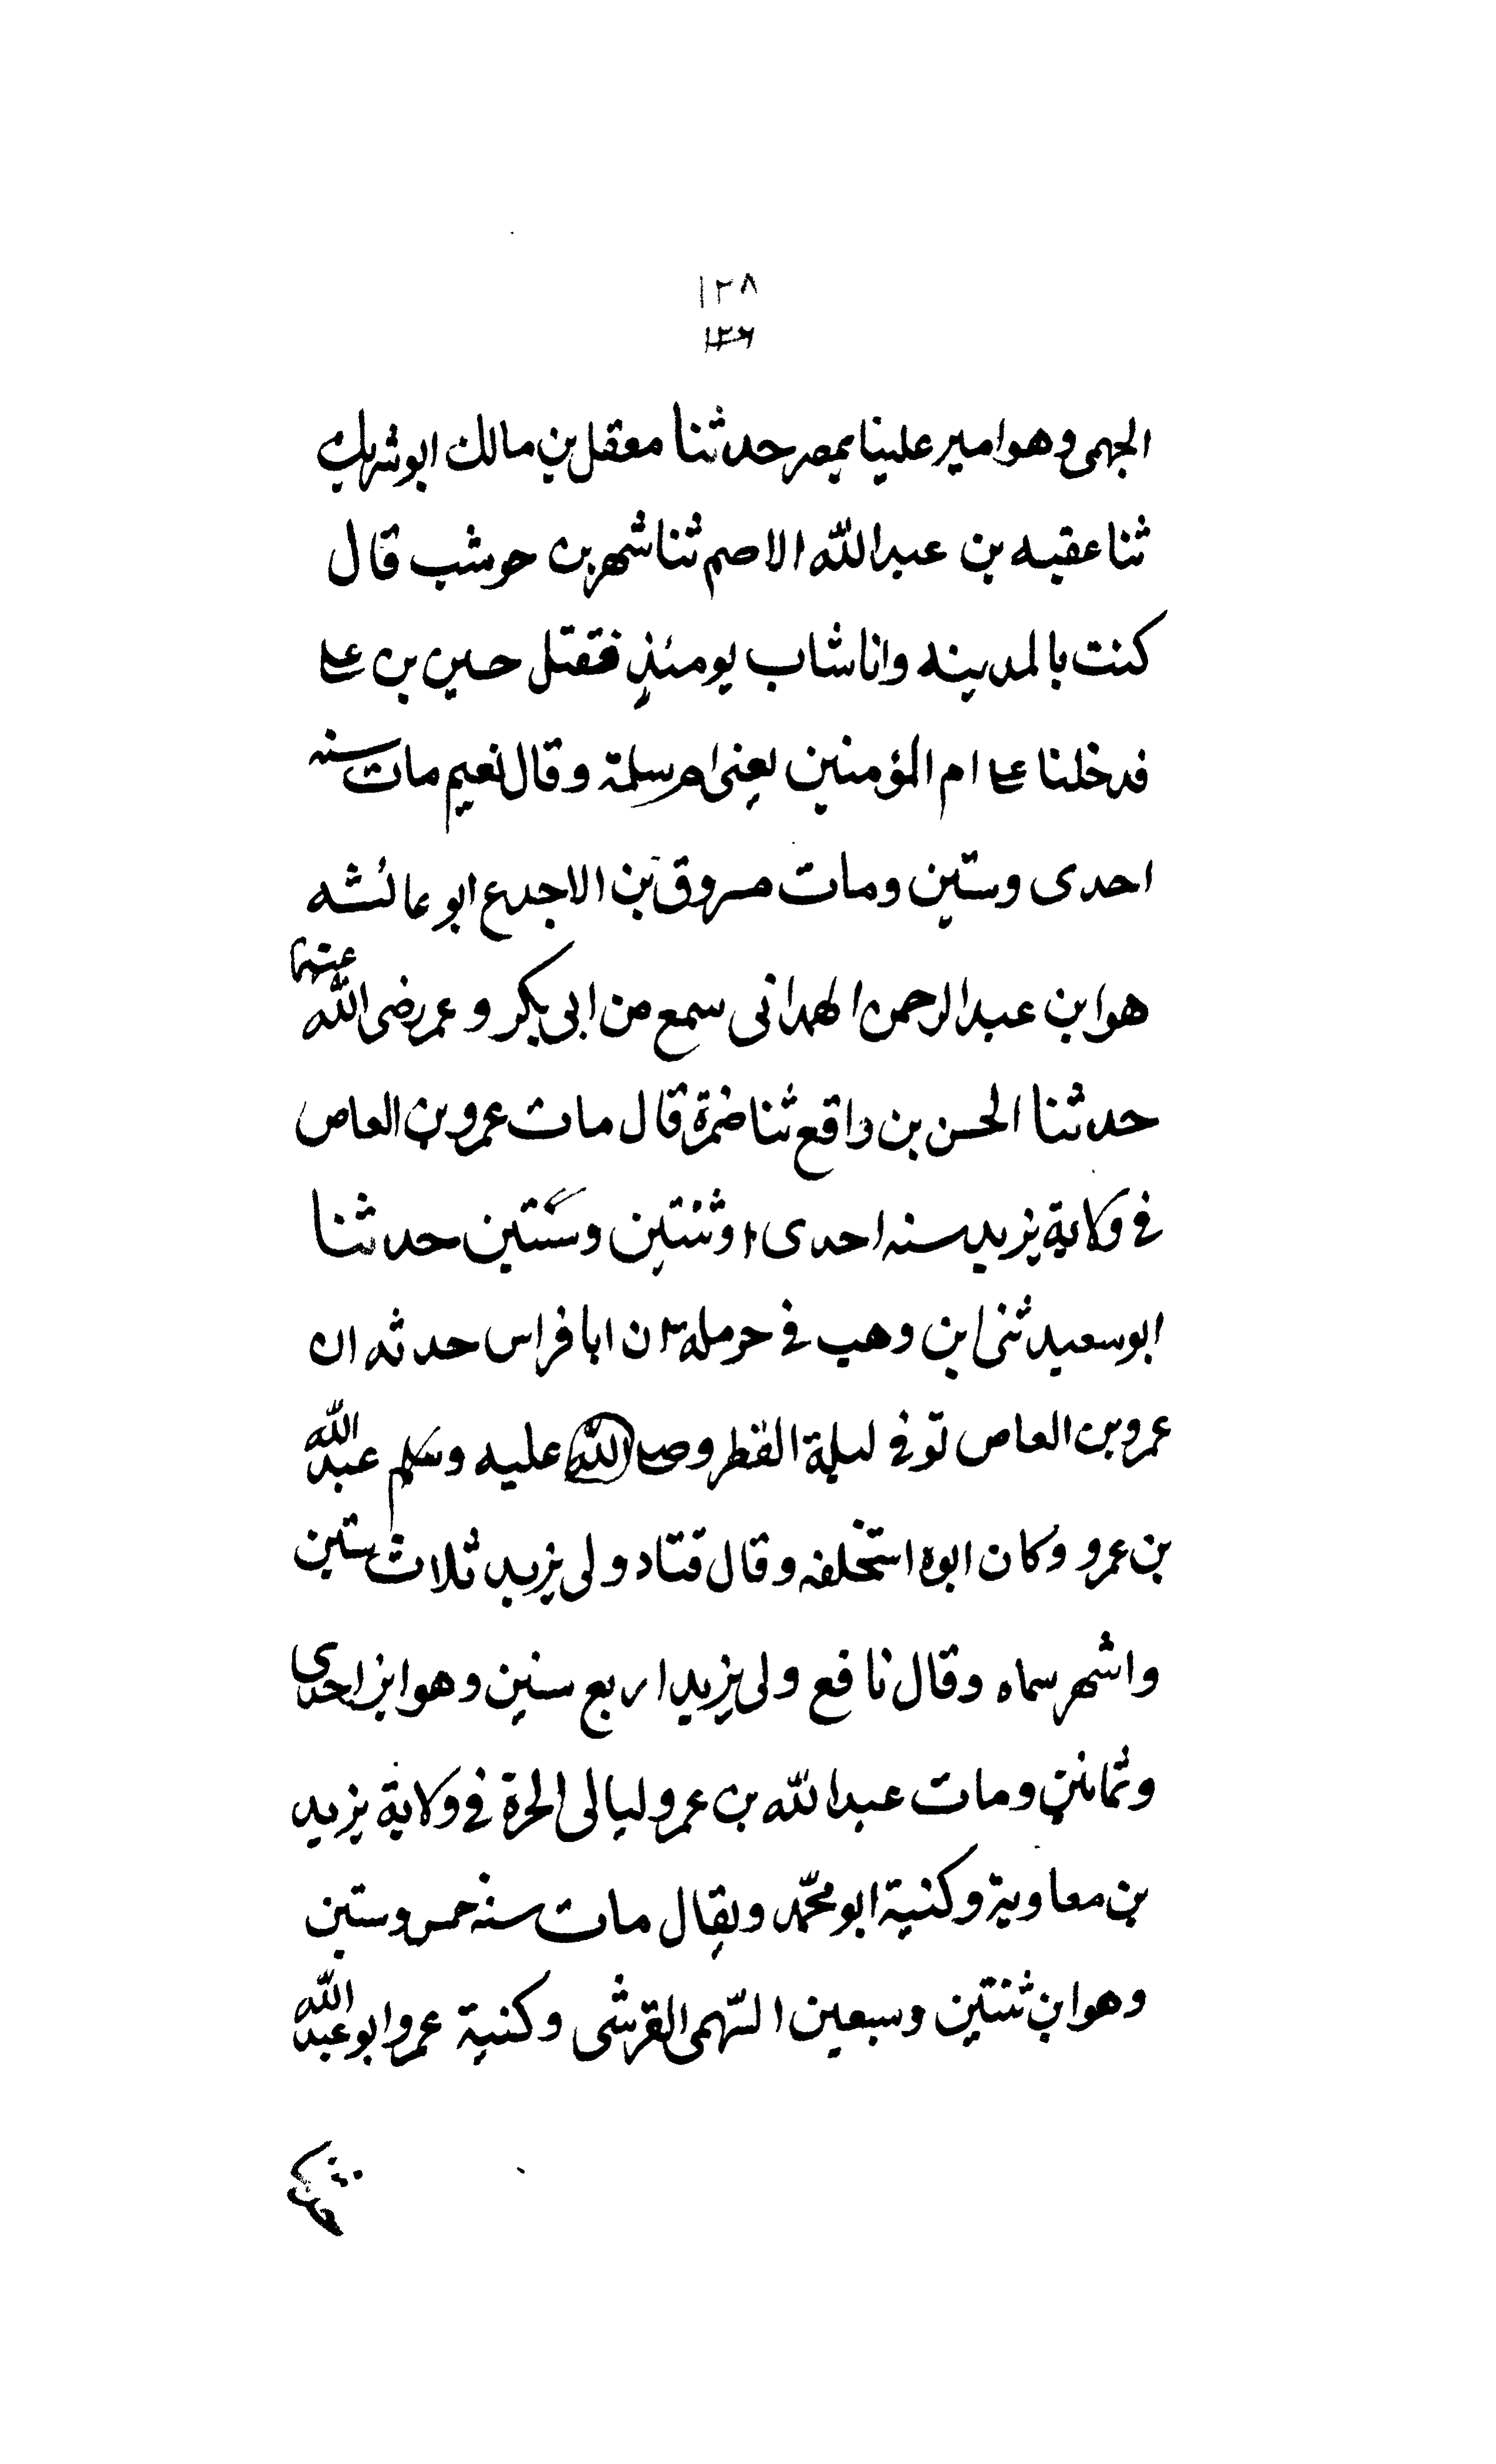 ١٢٨
١٣٦
الجهمى وهو امير علينا بمصر حدثنا معقل بن مالك ابو شريك
ثنا عقبه بن عبد الله الاصم ثنا شهر بن حوشب قال
كنت بالمدينه وانا شاب يومئذ فقتل حسين بن على
فدخلنا على ام المؤمنين يعنى ام سلمة وقال نعيم مات سنه
احدى وستين ومات مسروق بن الاجدع ابو عائشه
هو ابن عبد الرحمن الهمدانى سمع من ابى بكر و عمر رضى الله عنهما
حدثنا الحسن بن واقع ثنا ضمرة قال مات عمرو بن العاص
فى ولاية يزيد سنه احدى او ثنتين وستين حدثنا
ابو سعيد ثنى ابن وهب فى حرملة ان ابا فراس حدثه ان
عمرو بن العاص توفى ليلة الفطر وصلى الله عليه وسلم عبد الله
بن عمرو وكان ابوه استخلفه وقال قتاد ولى يزيد ثلاث ستين
واشهر سماه وقال نافع ولى يزيد اربع سنين وهو ابن احدى
وثمانين ومات عبد الله بن عمرو ليالى الحرة فى ولاية يزيد
بن معاوية وكنية ابو محمد ويقال مات سنه خمس وستين
وهو ابن ثنتين وسبعين السهمى القرشى وكنية عمرو ابو عبد الله